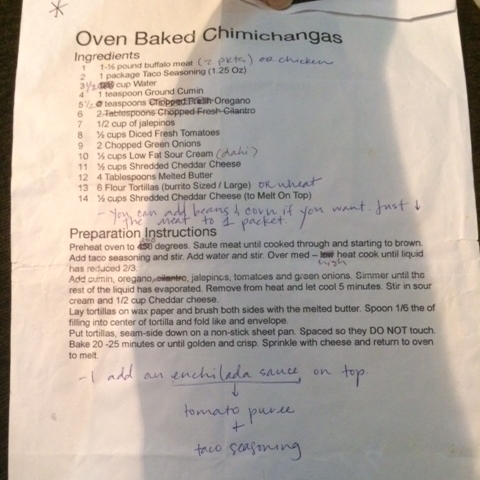 Oven Baked Chimichangas
Ingredients
1 1-½ pound buffalo meat (2 pkts) or chicken
2 1 package Taco Seasoning (1.25 Oz)
3 1/2 cup Water
4 1 teaspoon Ground Cumin
5 1/2 teaspoons Chopped Fresh Oregano
6 2 Tablespoons Chopped Fresh Cilantro
7 1/2 cup of jalepinos
8 ½ cups Diced Fresh Tomatoes
9 2 Chopped Green Onions
10 ½ cups Low Fat Sour Cream (dahi)
11 ½ cups Shredded Cheddar Cheese
12 4 Tablespoons Melted Butter
13 6 Flour Tortillas (burrito Sized / Large) or wheat
14 ½ cups Shredded Cheddar Cheese (to Melt On Top)
- You can add beans & corn if you want. Just ↓
the meat to 1 packet.
Preparation Instructions
Preheat oven to degrees. Saute meat until cooked through and starting to brown.
Add taco seasoning and stir. Add water and stir. Over med – low heat cook until liquid
high
has reduced 2/3.
Add cumin, oregano, cilantro, jalepincs, tomatoes and green onions. Simmer until the
rest of the liquid has evaporated. Remove from heat and let cool 5 minutes. Stir in sour
cream and 1/2 cup Cheddar cheese.
Lay tortillas on wax paper and brush both sides with the melted butter. Spoon 1/6 the of
filling into center of tortilla and fold like and envelope.
Put tortillas, seam-side down on a non-stick sheet pan. Spaced so they DO NOT touch.
Bake 20 -25 minutes or until golden and crisp. Sprinkle with cheese and return to oven
to melt.
- I add an enchilada sauce on top.
↓
tomato puree
+
taco seasoning